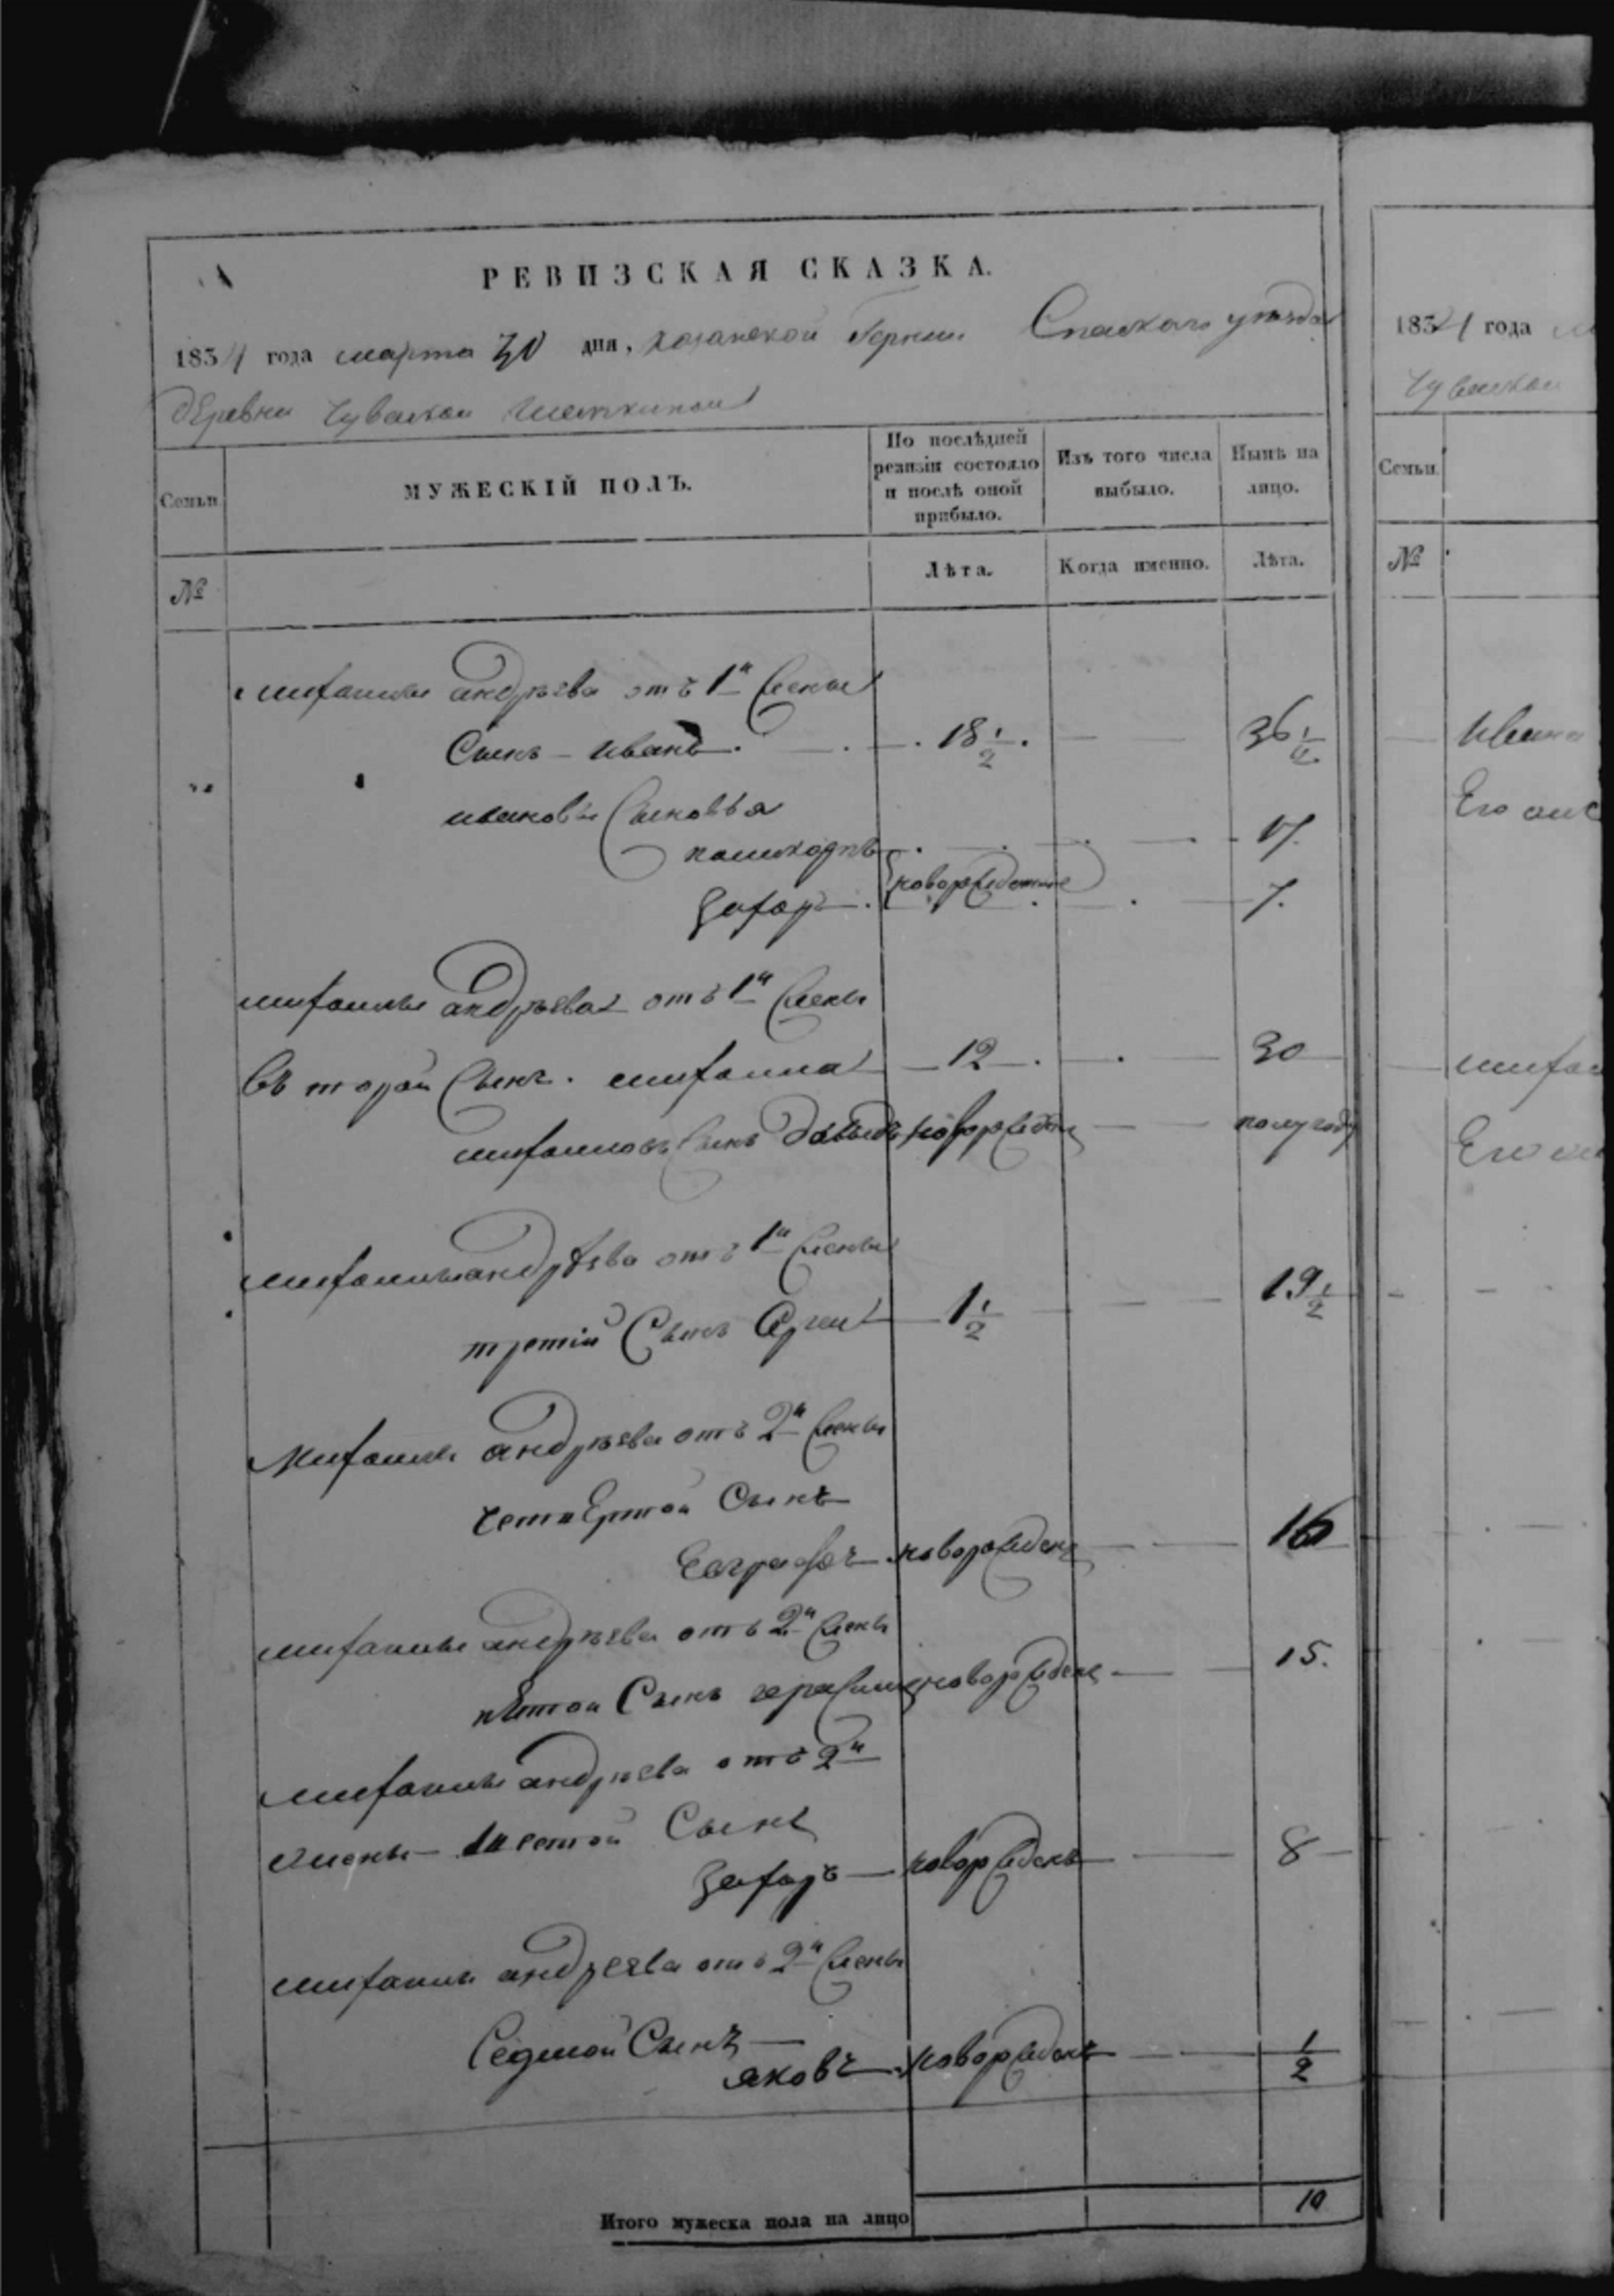 РЕВИЗСКАЯ СКАЗКА.
1834 года марта 30 дня, казанской Губернии Спаскаго уезда
деревни Чувашской
Семьи.
МУЖЕСКІЙ ПОЛЪ.
По послѣдней ревизіи состояло и послѣ оной прибыло.
Изъ того числа выбыло.
Нынѣ на лицо.
№
Лѣта.
Когда именно.
Лѣта.
михаилы андрѣева отъ 1й жены
Сынъ - иванъ. 18 1/2. 36 1/2
ивановы Сыновья
17.
захаръ новорожденные 7.
михаилы андрѣева отъ 1й жены
въторой Сынъ. михаила 12 30
михаиловъ Сынъ давыдъ новорожденъ полугоду
михаилы андрѣева отъ 1й жены
третій Сынъ 1 1/2 19 1/2
михаилы андрѣева отъ 2й жены
четвертой Сынъ
Евграфъ новорожденъ 16
михаилы андрѣева отъ 2й жены
пятой Сынъ герасимъ новорожденъ 15.
михаилы андрѣева отъ 2й
жены шестой Сынъ
захаръ новорожденъ 8
михаилы андреева отъ 2й жены
Седмой Сынъ
яковъ новорожденъ 1/2
Итого мужеска пола на лицо 10
1834 года
Семьи.
№
Ивана
Его
михаи
Его